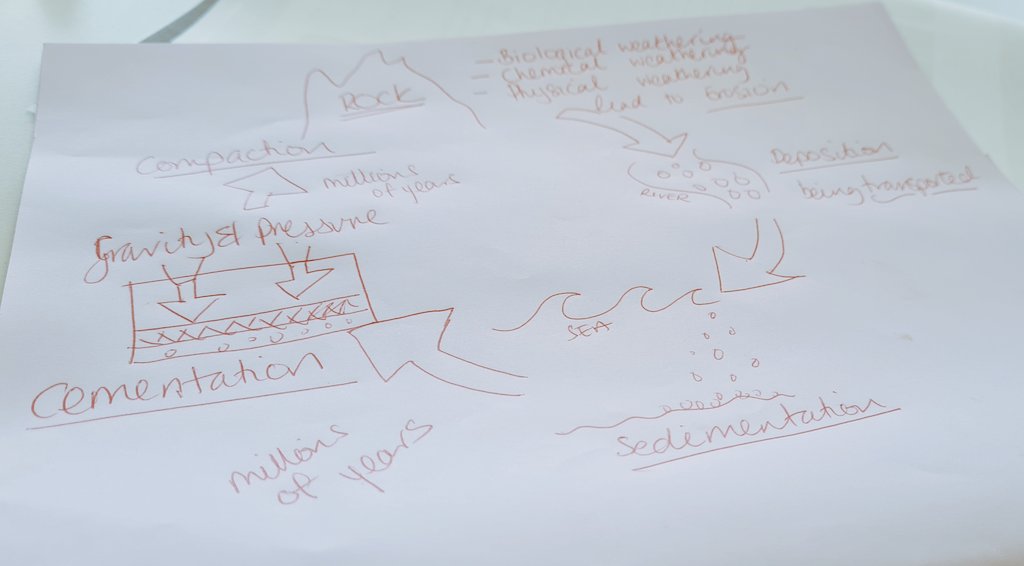 ROCK
- Biological weathering
- Chemical weathering
- Physical weathering
lead to Erosion
Compaction
millions
of years
RIVER
Deposition
being transported
Gravity & Pressure
SEA
Cementation
Sedimentation
millions
of years